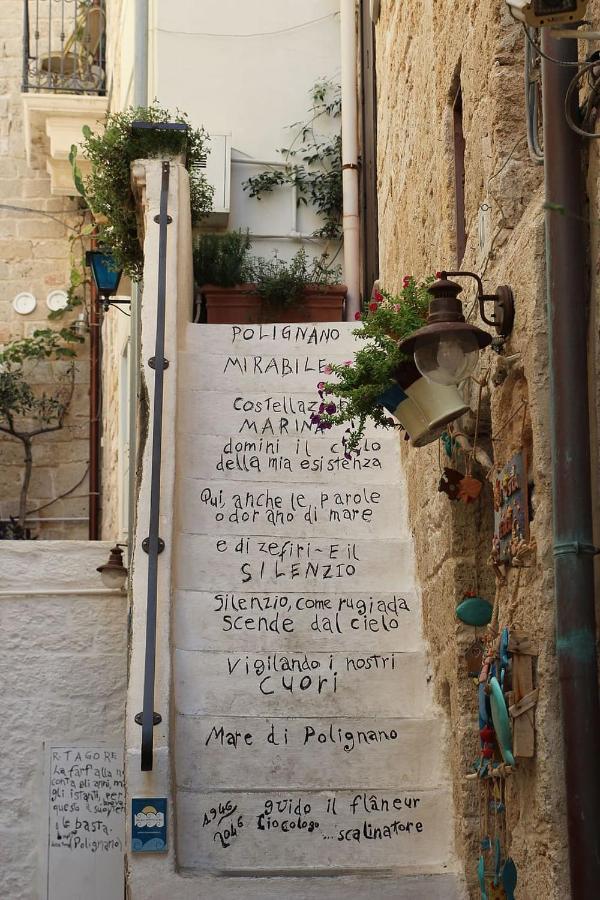 POLIGNANO
MIRABILE
Costellaz
MARINA
domini il cielo
della mia esistenza
Qui, anche le parole
odorano di mare
e di zefiri - E il
SILENZIO
Silenzio, come rugiada
scende dal cielo
Vigilando i nostri
cuori
Mare di Polignano
1946 guido il flâneur
2016 scalinatore
R. TAGORE
La farfalla n
conta gli anni, m
gli istanti, per
questo
le basta.
(Polignano)